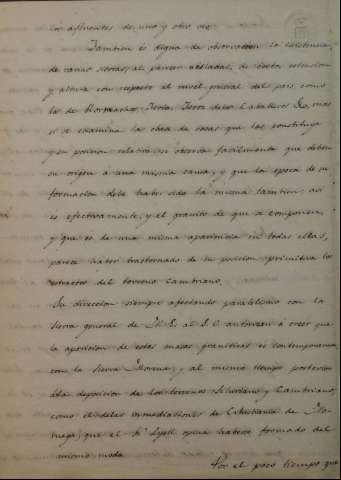 los afluentes de uno y otro rio.
Tambien es digna de observacion la existencia,
de varias sierras, al parecer aisladas, de cierta estension
y altura con respecto al nivel general del pais, como
la de Hornachos, Sierra de los Caballeros, mas
si se examina la clase de rocas que las constituye
y su posicion relativa se observa facilmente que deben
su origen a una misma causa, y que la epoca de su
formacion debe haber sido la misma tambien; asi
es efectivamente, y el granito de que se componen,
y que es de una misma apariencia en todas ellas,
parece haber trastornado de su posicion primitiva los
estractos del terreno Cambriano.
Su direccion siempre afectando paralelismo con la
sierra general de N.E. al S.O. autorizan á creer que
la aparicion de estas masas graniticas es contemporanea
con la Sierra Morena; y al mismo tiempo posterior
á la deposicion de los terrenos Siluriano y Cambriano,
como el de las inmediaciones de Cristiania de
Noruega; que el Sr. Lyell opina haberse formado del
mismo modo.
Por el poco tiempo que